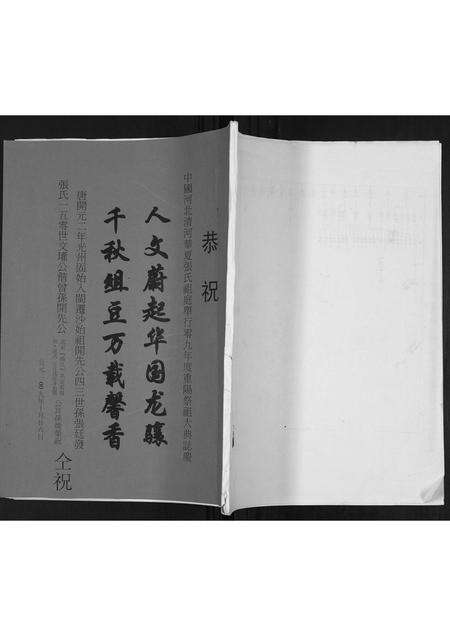 恭祝
中國河北清河華夏張氏祖庭舉行零九年度重陽祭祖大典誌慶
人文蔚起华国龙骧
千秋俎豆万载馨香
唐開元二年光州固始入閩遷沙始祖開先公四三世孫張廷發
張氏一二五零世文瓘公階曾孫開先公
仝祝